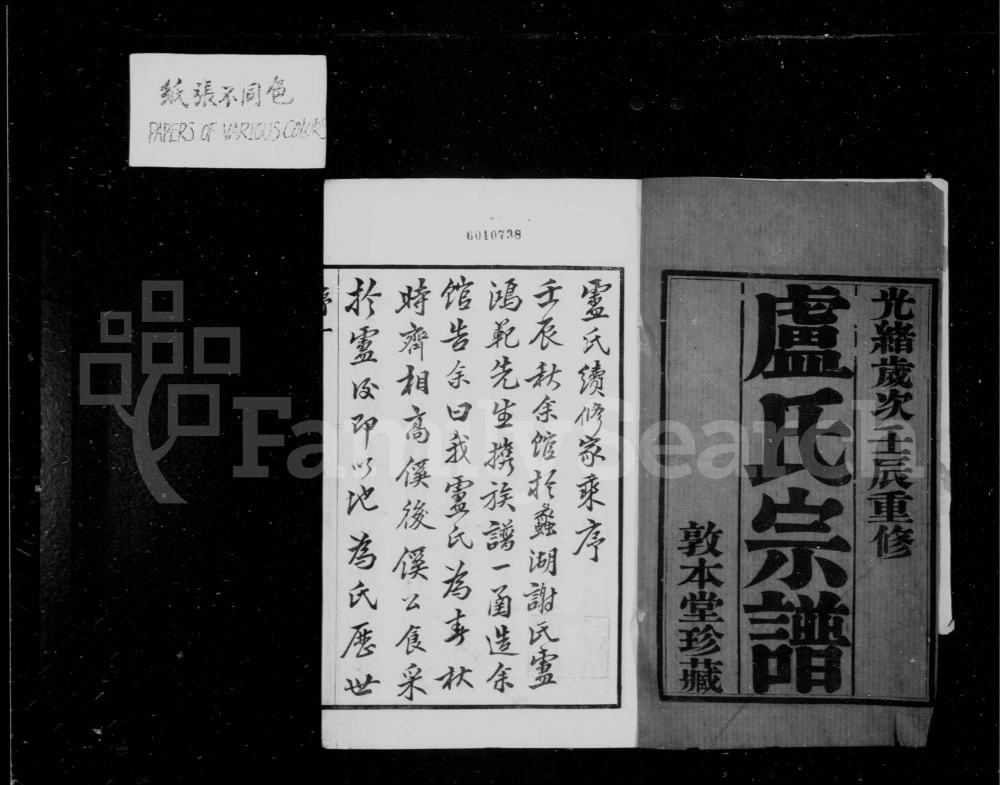 紙張不同色
PAPERS OF VARIOUS COLORS
光緒歲次壬辰重修
盧氏宗譜
敦本堂珍藏
6010738
盧氏續修家乘序
壬辰秋余馆於蠡湖謝氏盧
鴻範先生携族譜一函造余
馆告余曰我盧氏為春秋
時齊相高傒後傒公食采
於盧後即以地為氏歷世
序一
FamilySearch